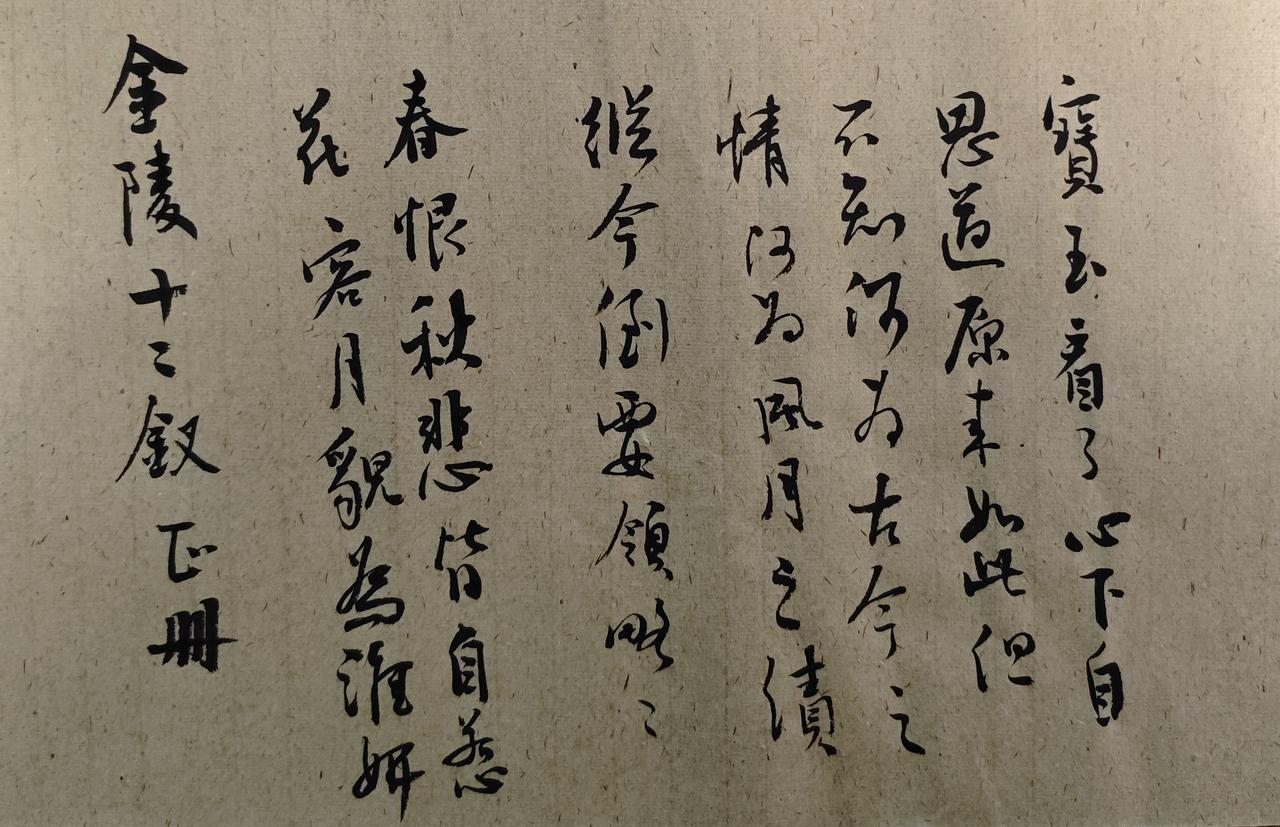 寶玉看了心下自
思道原來如此但
不知何为古今之
情何为風月之績
縱今倒要領略〻
春恨秋悲皆自惹
花容月貌為誰妍
金陵十二釵正冊